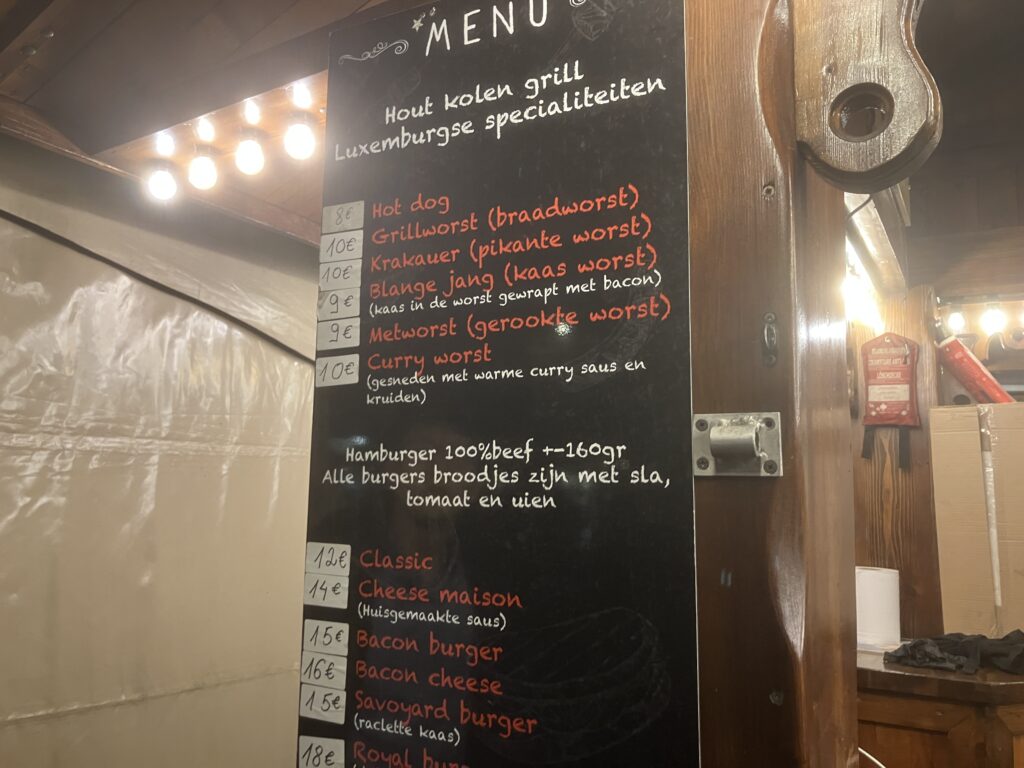 MENU
Hout kolen grill
Luxemburgse specialiteiten
8€ Hot dog
10€ Grillworst (braadworst)
10€ Krakauer (pikante worst)
9€ Blange jang (kaas worst)
(kaas in de worst gewrapt met bacon)
9€ Metworst (gerookte worst)
10€ Curry worst
(gesneden met warme curry saus en
kruiden)
Hamburger 100%beef +-160gr
Alle burgers broodjes zijn met sla,
tomaat en uien
12€ Classic
14€ Cheese maison
(Huisgemaakte saus)
15€ Bacon burger
16€ Bacon cheese
15€ Savoyard burger
(raclette kaas)
18€ Royal